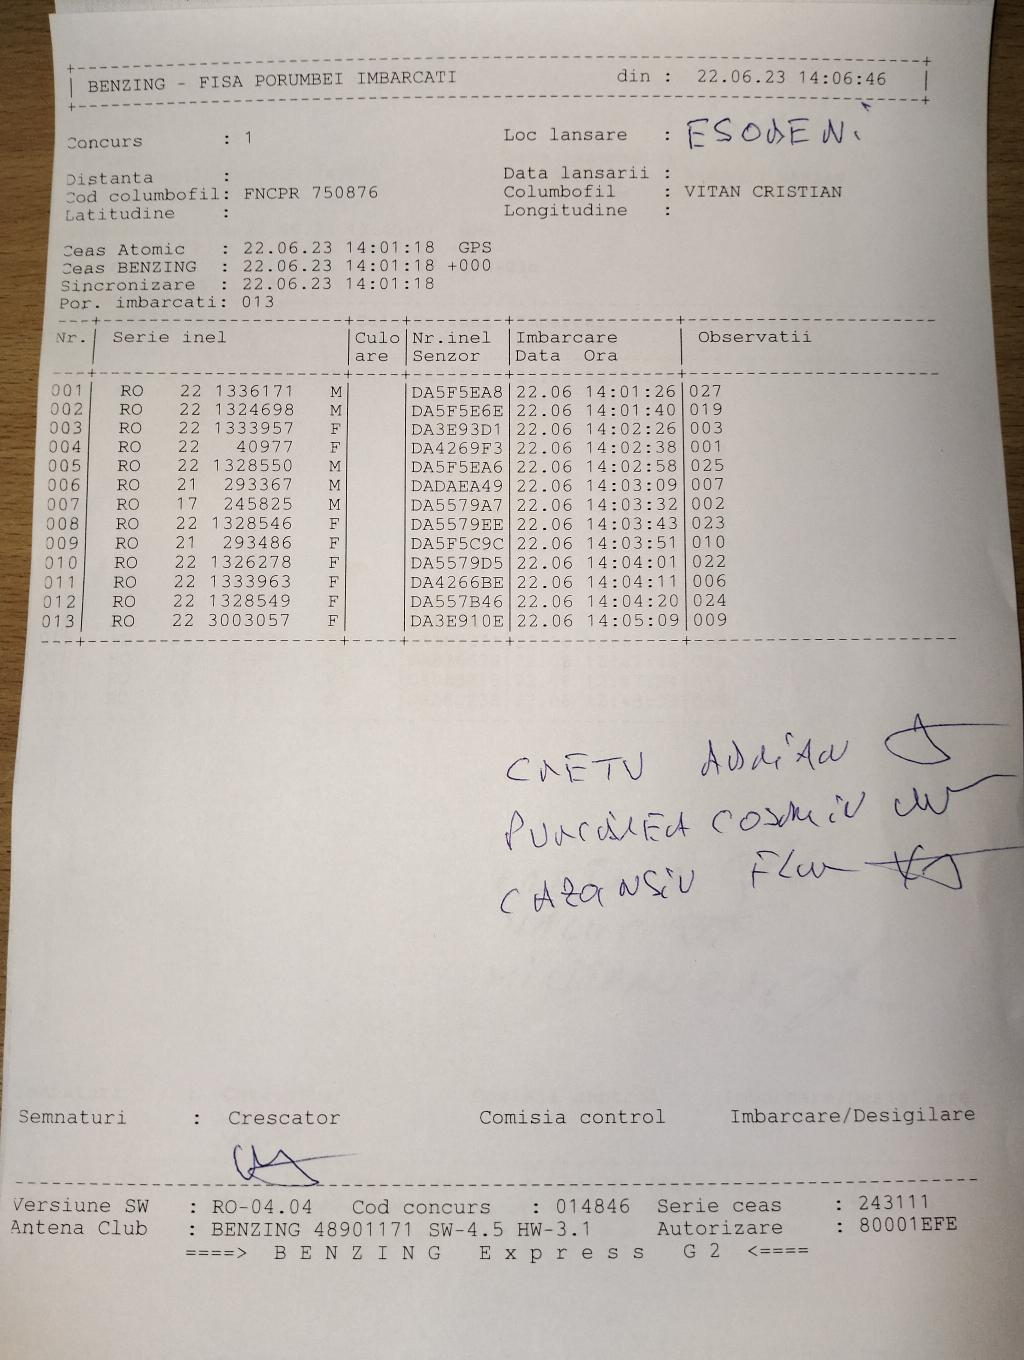 BENZING - FISA PORUMBEI IMBARCATI din : 22.06.23 14:06:46
Concurs : 1 Loc lansare : ESODENi
Distanta : Data lansarii :
Cod columbofil: FNCPR 750876 Columbofil : VITAN CRISTIAN
Latitudine : Longitudine :
Ceas Atomic : 22.06.23 14:01:18 GPS
Ceas BENZING : 22.06.23 14:01:18 +000
Sincronizare : 22.06.23 14:01:18
Por. imbarcati: 013
Nr. Serie inel Culo Nr.inel Imbarcare Observatii
are Senzor Data Ora
001 RO 22 1336171 M DA5F5EA8 22.06 14:01:26 027
002 RO 22 1324698 M DA5F5E6E 22.06 14:01:40 019
003 RO 22 1333957 F DA3E93D1 22.06 14:02:26 003
004 RO 22 40977 F DA4269F3 22.06 14:02:38 001
005 RO 22 1328550 M DA5F5EA6 22.06 14:02:58 025
006 RO 21 293367 M DADAEA49 22.06 14:03:09 007
007 RO 17 245825 M DA5579A7 22.06 14:03:32 002
008 RO 22 1328546 F DA5579EE 22.06 14:03:43 023
009 RO 21 293486 F DA5F5C9C 22.06 14:03:51 010
010 RO 22 1326278 F DA5579D5 22.06 14:04:01 022
011 RO 22 1333963 F DA4266BE 22.06 14:04:11 006
012 RO 22 1328549 F DA557B46 22.06 14:04:20 024
013 RO 22 3003057 F DA3E910E 22.06 14:05:09 009
CRETU ADRiAN
COSMiN
Semnaturi : Crescator Comisia control Imbarcare/Desigilare
Versiune SW : RO-04.04 Cod concurs : 014846 Serie ceas : 243111
Antena Club : BENZING 48901171 SW-4.5 HW-3.1 Autorizare : 80001EFE
====> B E N Z I N G E x p r e s s G 2 <====